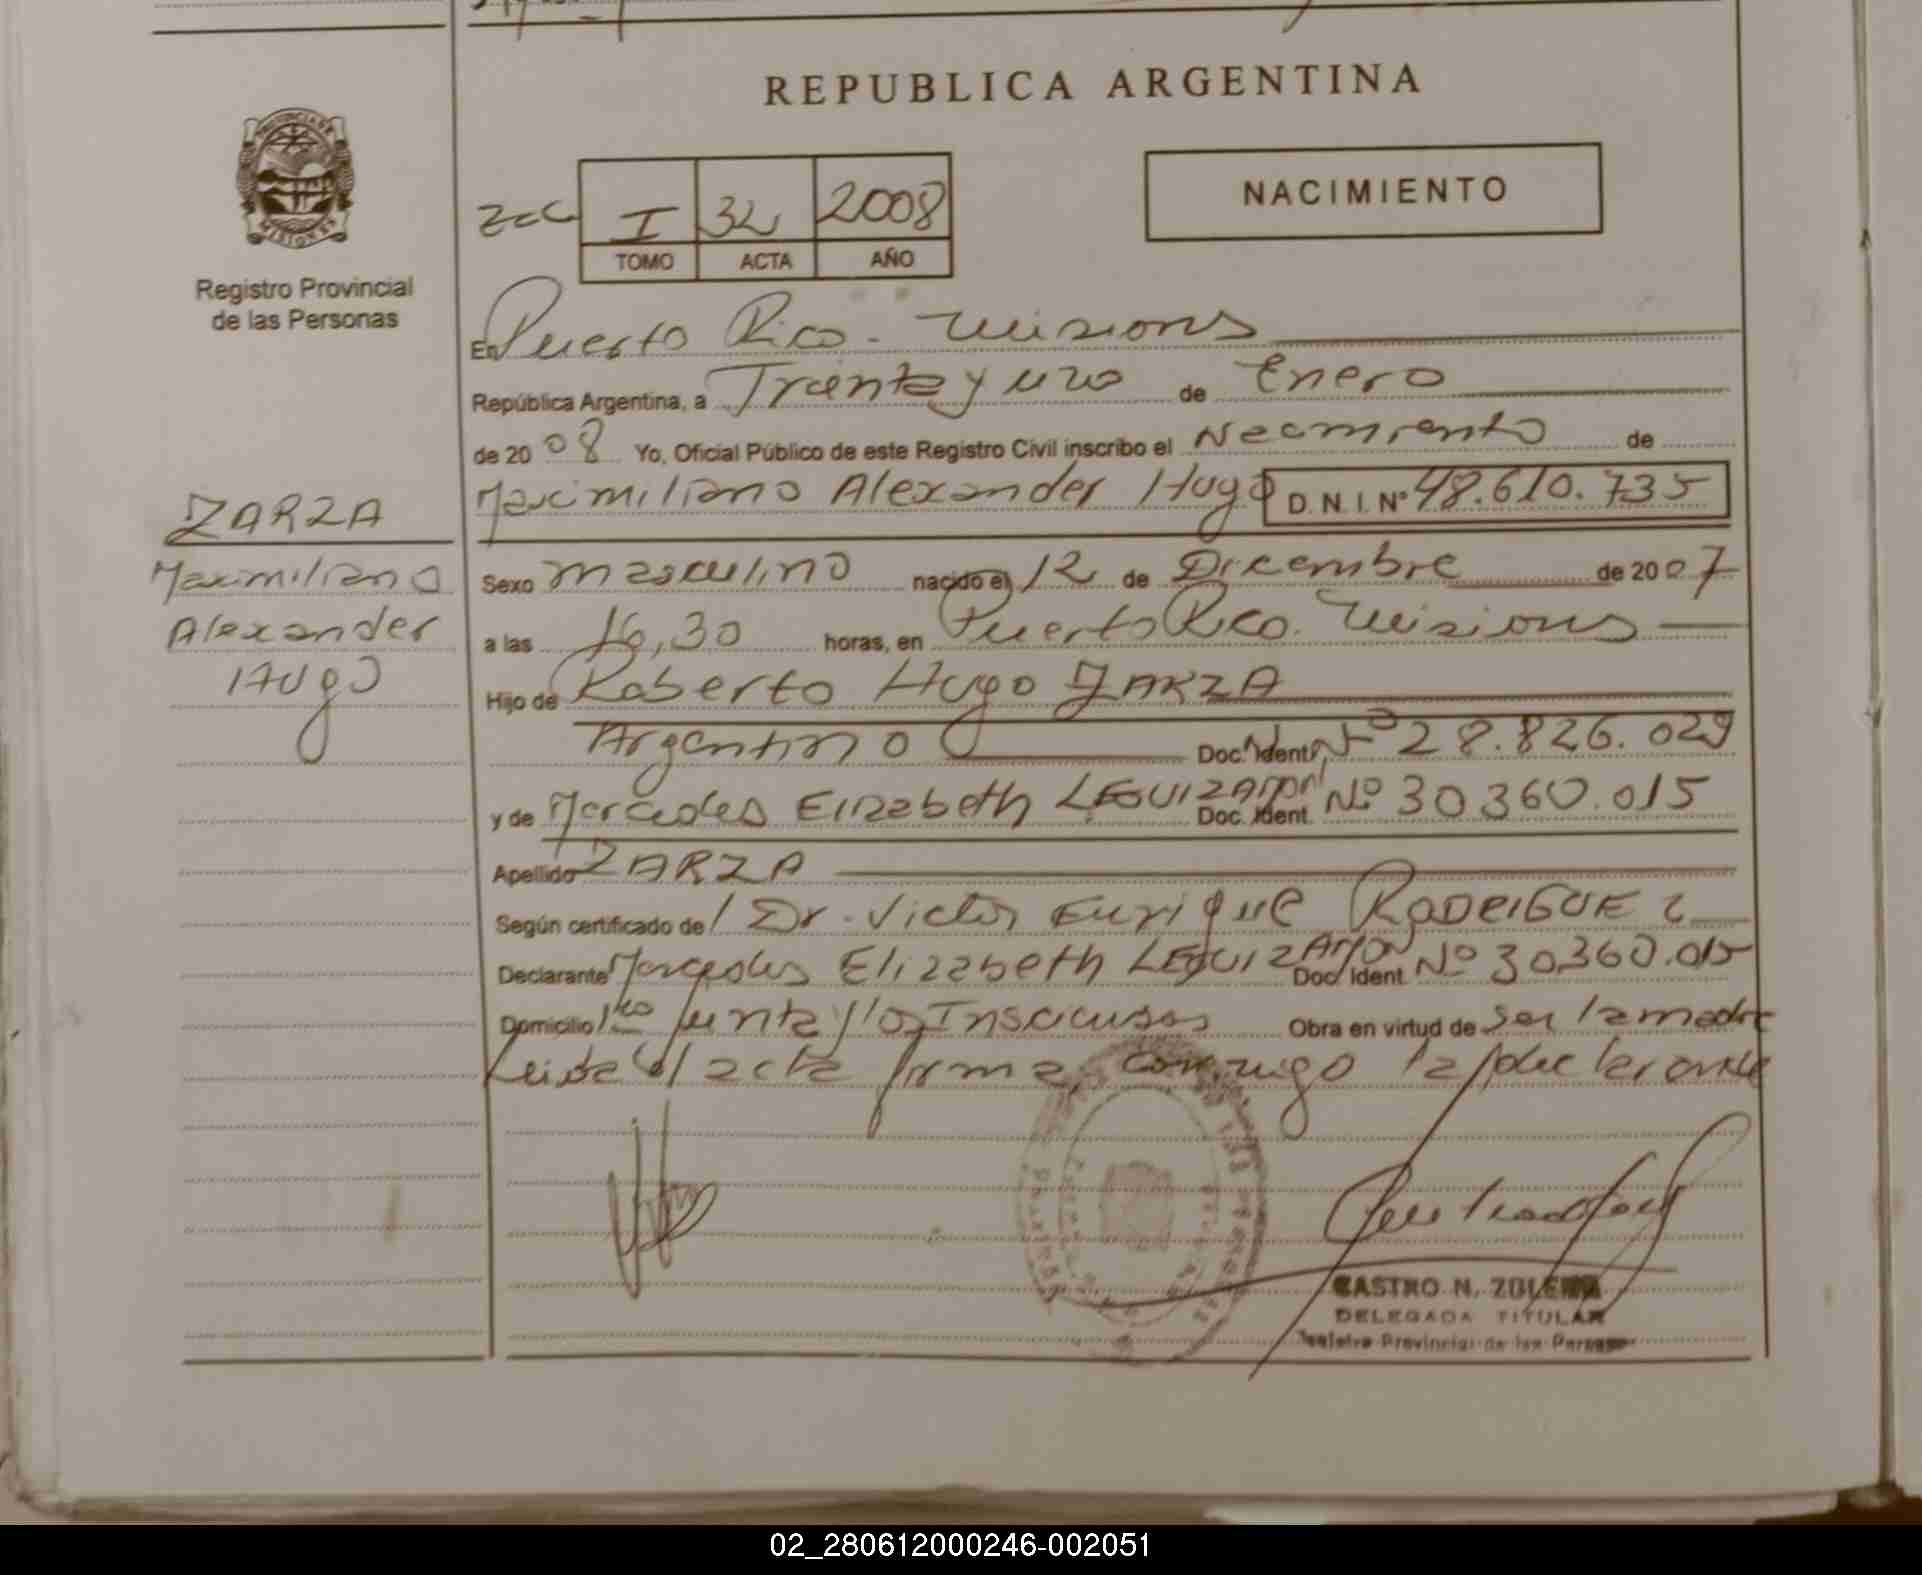 REPUBLICA ARGENTINA
PROVINCIA DE
MISIONES
Registro Provincial
de las Personas
NACIMIENTO
I 32 2008
TOMO ACTA AÑO
En Puerto Rico - Misiones
República Argentina, a Treinta y uno de Enero
de 2008 Yo, Oficial Público de este Registro Civil inscribo el Nacimiento de
Maximiliano Alexander Hugo D.N.I. Nº 48.610.735
ZARZA
Maximiliano
Alexander
Hugo
Sexo masculino nacido el 12 de Diciembre de 2007
a las 16,30 horas, en Puerto Rico. Misiones
Hijo de Roberto Hugo ZARZA
Argentino Doc. Ident. Nº 28.826.029
y de Mercedes Elizabeth LEGUIZAMON Doc. Ident. Nº 30360.015
Apellido ZARZA
Según certificado de Dr. Victor Enrique RODRIGUEZ
Declarante Mercedes Elizabeth LEGUIZAMON Doc. Ident. Nº 30360.015
Domicilio Junta Obra en virtud de ser la madre
Leida el acta firma conmigo la declarante
CASTRO N. ZULEMA
DELEGADA TITULAR
Registro Provincial de las Personas
02_280612000246-002051